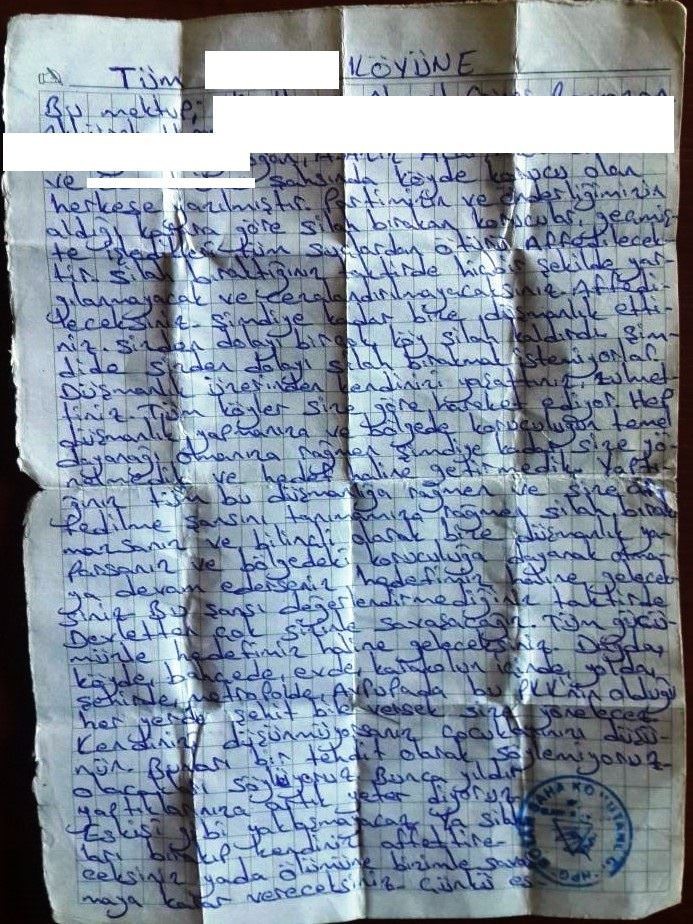 TÜM KÖYÜNE
Bu mektup;
ve şahsında köyde korucu olan
herkese yazılmıştır. Partimizin ve önderliğimizin
aldığı karara göre silah bırakan korucular, geçmiş-
te işledikleri tüm suçlardan ötürü Affedilecek-
tir. Silah bıraktığınız taktirde hiçbir şekilde yar-
gılanmayacak ve cezalandırılmayacaksınız. Affedi-
leceksiniz. Şimdiye kadar bize düşmanlık etti-
niz. Sizden dolayı birçok köy silah kaldırdı. Şim-
dide sizden dolayı silah bırakmak istemiyorlar.
Düşmanlık üzerinden kendinizi yaşattınız, zulmet-
tiniz. Tüm köyler size göre hareket ediyor. Hep
düşmanlık yapmanıza ve bölgede koruculuğun temel
dayanağı olmanıza rağmen şimdiye kadar size yö-
nelmedik ve hedef haline getirmedik. Yaptı-
ğınız tüm bu düşmanlığa rağmen ve size af-
fedilme şansını tanımamıza rağmen silah bırak-
mazsanız ve bilinçli olarak bize düşmanlık ya-
parsanız ve bölgedeki koruculuğa dayanak olma-
ya devam ederseniz hedefimiz haline gelecek-
siniz. Bu şansı değerlendirmediğiniz taktirde
Devletten çok sizinle savaşacağız. Tüm gücü-
müzle hedefimiz haline geleceksiniz. Dağda,
köyde, bahçede, evde, karakolun içinde, yolda,
şehirde, metropolde, Avrupada bu PKK'nin olduğu
her yerde, şehit bile versek size yönelecez.
Kendinizi düşünmüyorsanız çocuklarınızı düşü-
nün. Bunları bir tehdit olarak söylemiyoruz.
olacakları söylüyoruz. Bunca yıldır
yaptıklarınıza artık yeter diyoruz.
Eskisi gibi yaklaşmayacaz. Ya silah-
ları bırakıp kendinizi affettire-
ceksiniz yada ölümüne bizimle savaş-
maya karar vereceksiniz. Çünkü es
SAHA KO UTANL
HPG